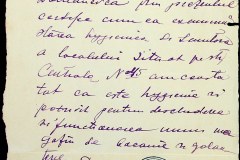 prin prezentul
certifică cum ca examinând
starea hygienica si Sanitara
a localului Situat pe str.
Centrala No 45 am consta
tat ca este hygienic si
potrivit pentru deschiderea
si functionarea unui ma
gazin de bacanie si